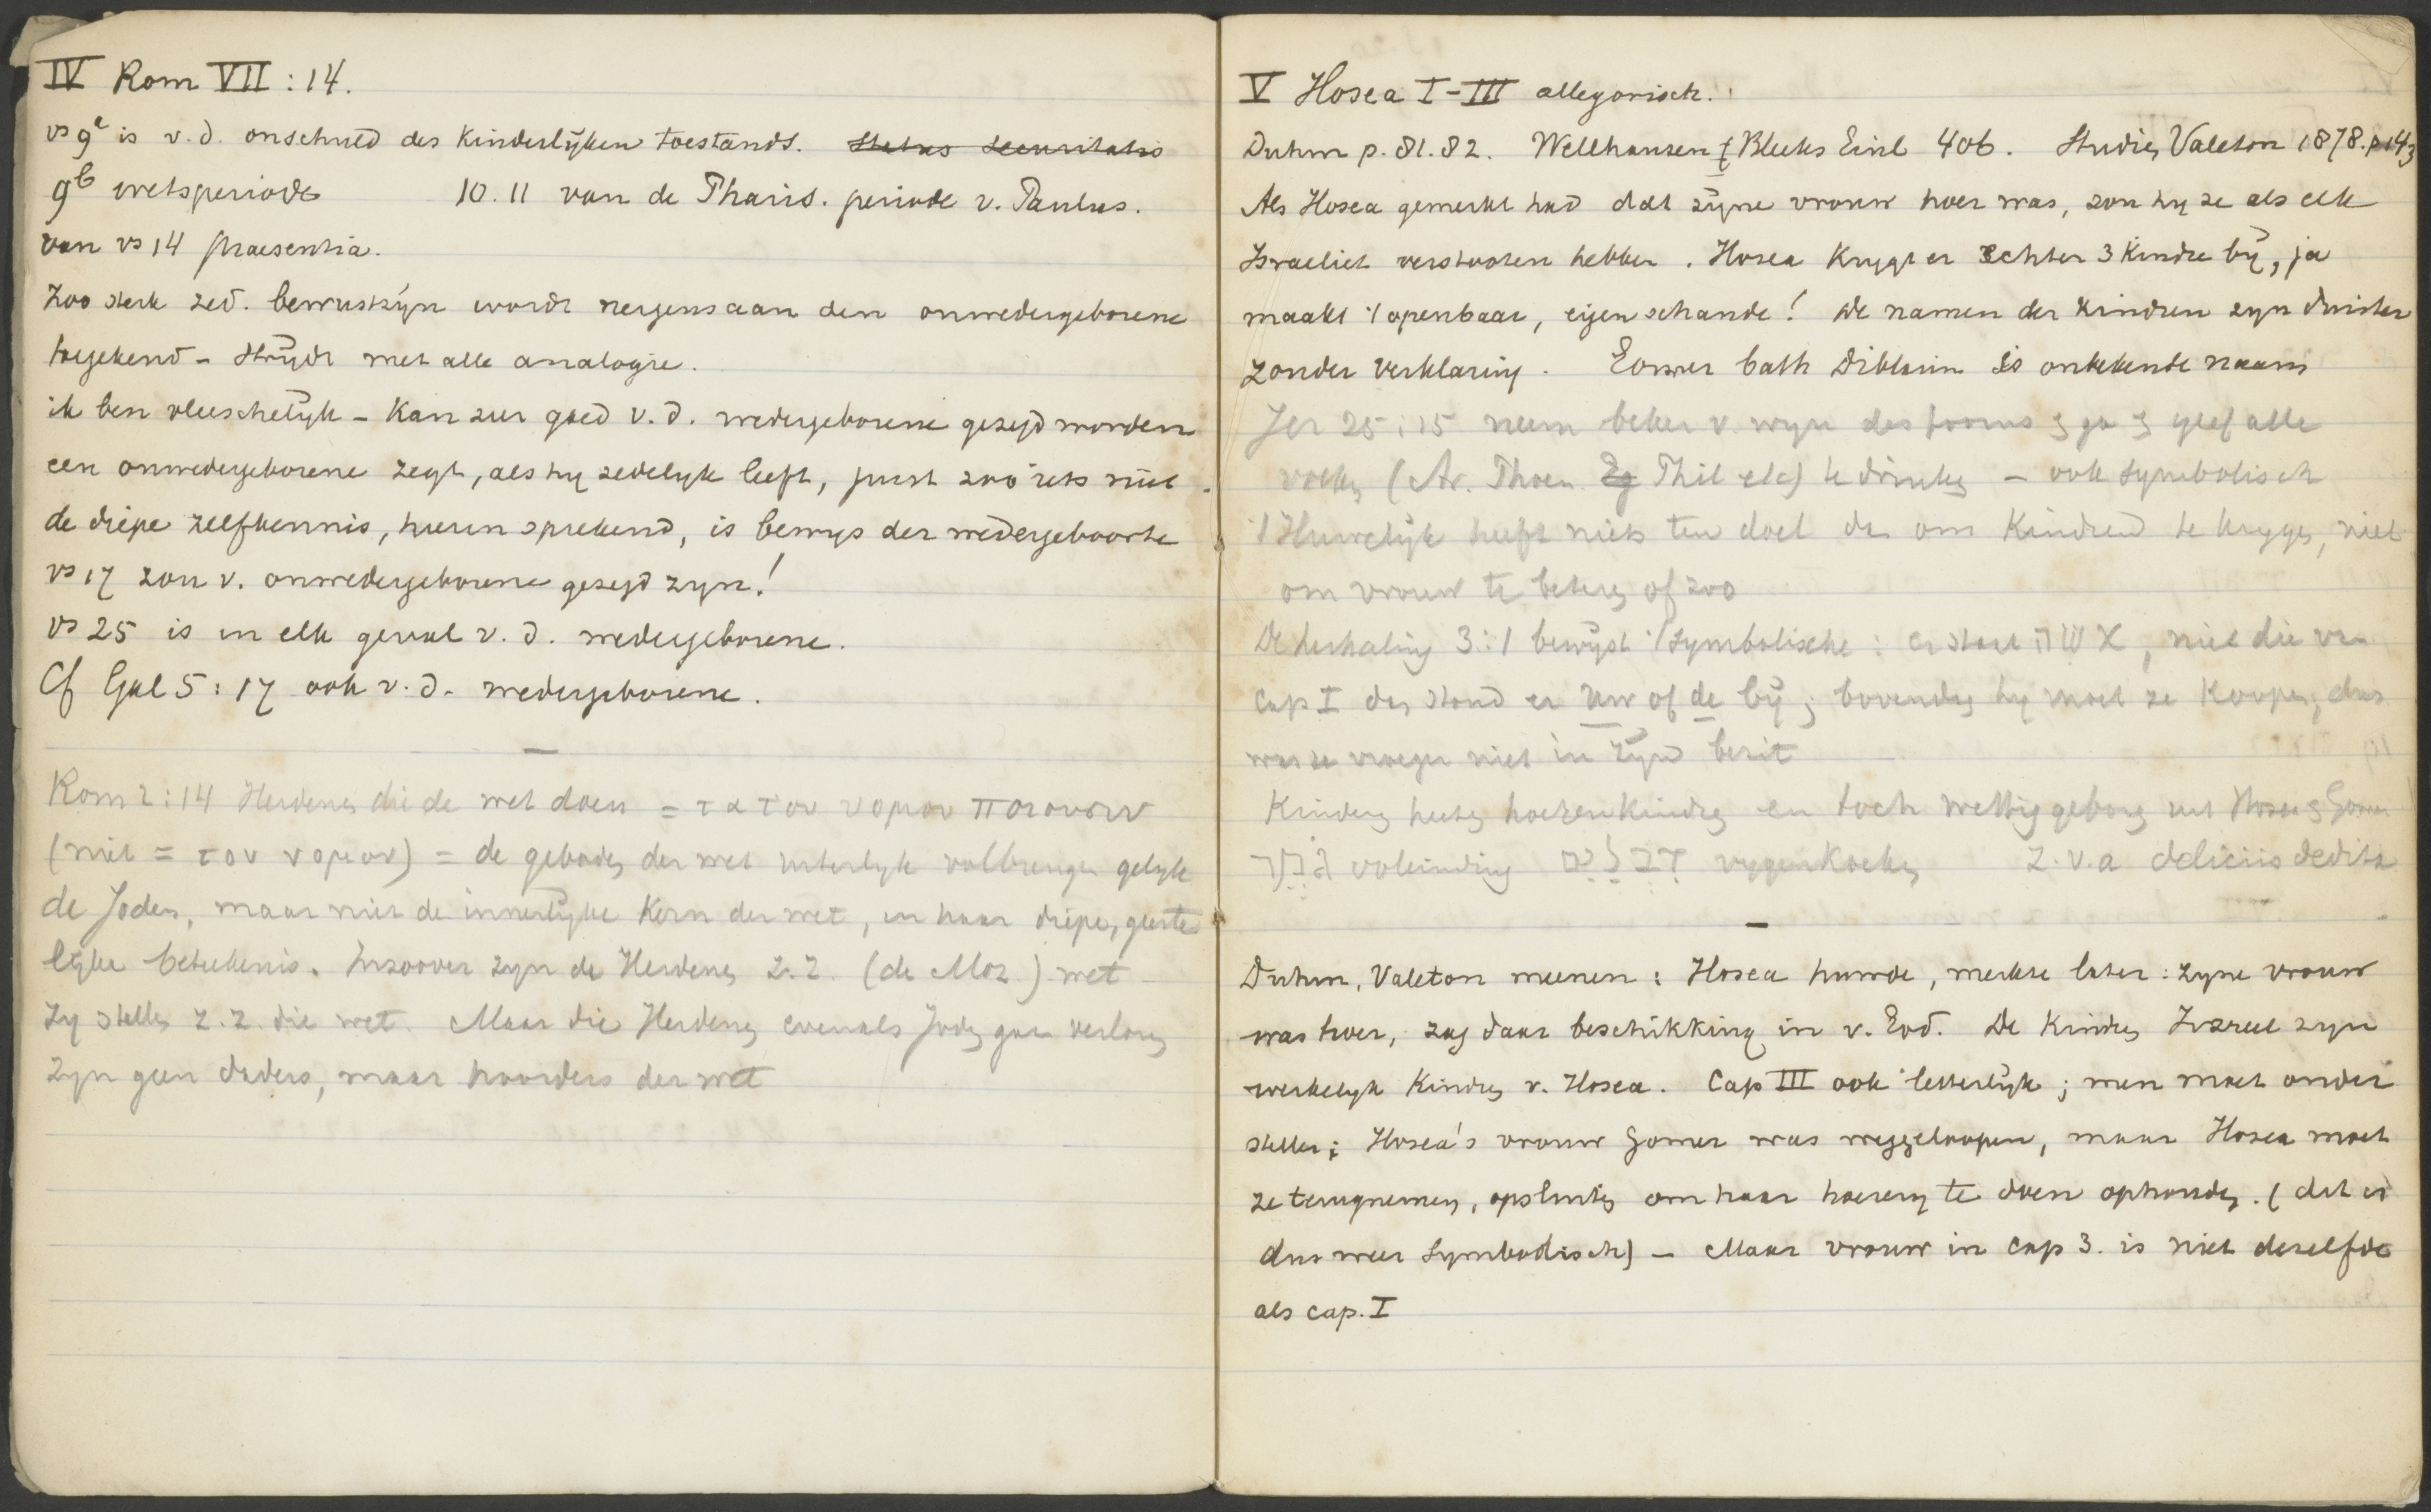 IV Rom VII : 14.
vs 9a is v. d. onschuld des Kinderlijken toestands. Status securitatis
9b wetsperiode 10. 11 van de Pharis. periode v. Paulus.
van vs 14 praesentia.
Zoo sterk zed. bewustzijn wordt nergens aan den onwedergeborene
toegekend - strijdt met alle analogie.
ik ben vleeschelijk - Kan zeer goed v. d. wedergeborene gezegd worden
een onwedergeborene zegt, als hij zedelijk leeft, juist zoo iets niet.
de diepe zelfkennis, hierin sprekend, is bewijs der wedergeboorte
vs 17 zou v. onwedergeborene gezegd zijn!
vs 25 is in elk geval v. d. wedergeborene.
Cf Gal 5 : 17 ook v. d. wedergeborene.
Rom 2 : 14 Heidenen die de wet doen = τα του νομου ποιουσιν
(niet = τον νομον) = de geboden der wet uiterlijk volbrengen gelijk
de Joden, maar niet de innerlijke Kern der wet, in haar diepe, geeste
lijke beteekenis. Inzoover zijn de Heidenen z. z. (de Moz.) wet
Zij stellen z. z. die wet. Maar die Heidenen evenals Joden gaan verloren
Zijn geen daders, maar hoorders der wet
V Hosea I - III allegorisch.
Duhm p. 81. 82. Wellhausen Bleeks Einl 406. Studiën Valeton 1878. p 143
Als Hosea gemerkt had dat zijne vrouw hoer was, zou hij ze als elk
Israeliet verstooten hebben. Hosea Krijgt er echter 3 Kindren bij, ja
maakt 't openbaar, eigen schande! De namen der Kindren zijn duister
zonder verklaring. Gomer bath Diblaim is onbekende naam
Jer 25 : 15 neem beker v. wijn des toorns & ga & geef alle
volken (Ar. Phoen. Eg Phil etc) te drinken - ook symbolisch
't Huwelijk heeft niets ten doel dan om Kindren te krijgen, niet
om vrouw te beteren of zoo
De herhaling 3 : 1 bewijst 't symbolische : er staat אשה, niet die van
cap I dan stond er uw of de bij; bovendien hij moet ze Koopen, dus
was ze vroeger niet in zijn bezit
Kinderen heeten hoerenkindren en toch wettig geboren uit Hosea & Gomer
גמר voleinding דבלים vijgenkoeken z. v. a deliciis dedita
Duhm, Valeton meenen : Hosea huwde, merkte later : zijne vrouw
was hoer, zag daar beschikking in v. God. De Kindren Jizreel zijn
werkelijk Kindren v. Hosea. Cap III ook letterlijk; men moet onder
stellen : Hosea's vrouw Gomer was weggeloopen, maar Hosea moet
ze terugnemen, opsluiten om haar hoererij te doen ophouden. (dit is
dus weer symbolisch) - Maar vrouw in cap 3. is niet dezelfde
als cap. I